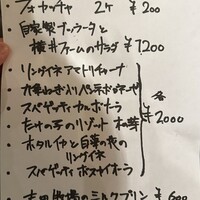 フォカッチャ 2ケ ¥200
自家製ブッラータと
横井ファームのサラダ ¥1,200
・リングイネ アマトリチャーナ
・九条ねぎとパンチェッタ
・スパゲッティ カルボナーラ 各
・たけの子のリゾート ¥2,000
・ホタルイカと白菜の
リングイネ
・スパゲッティ ボスカイオーラ
吉田牧場のミルクプリン ¥600